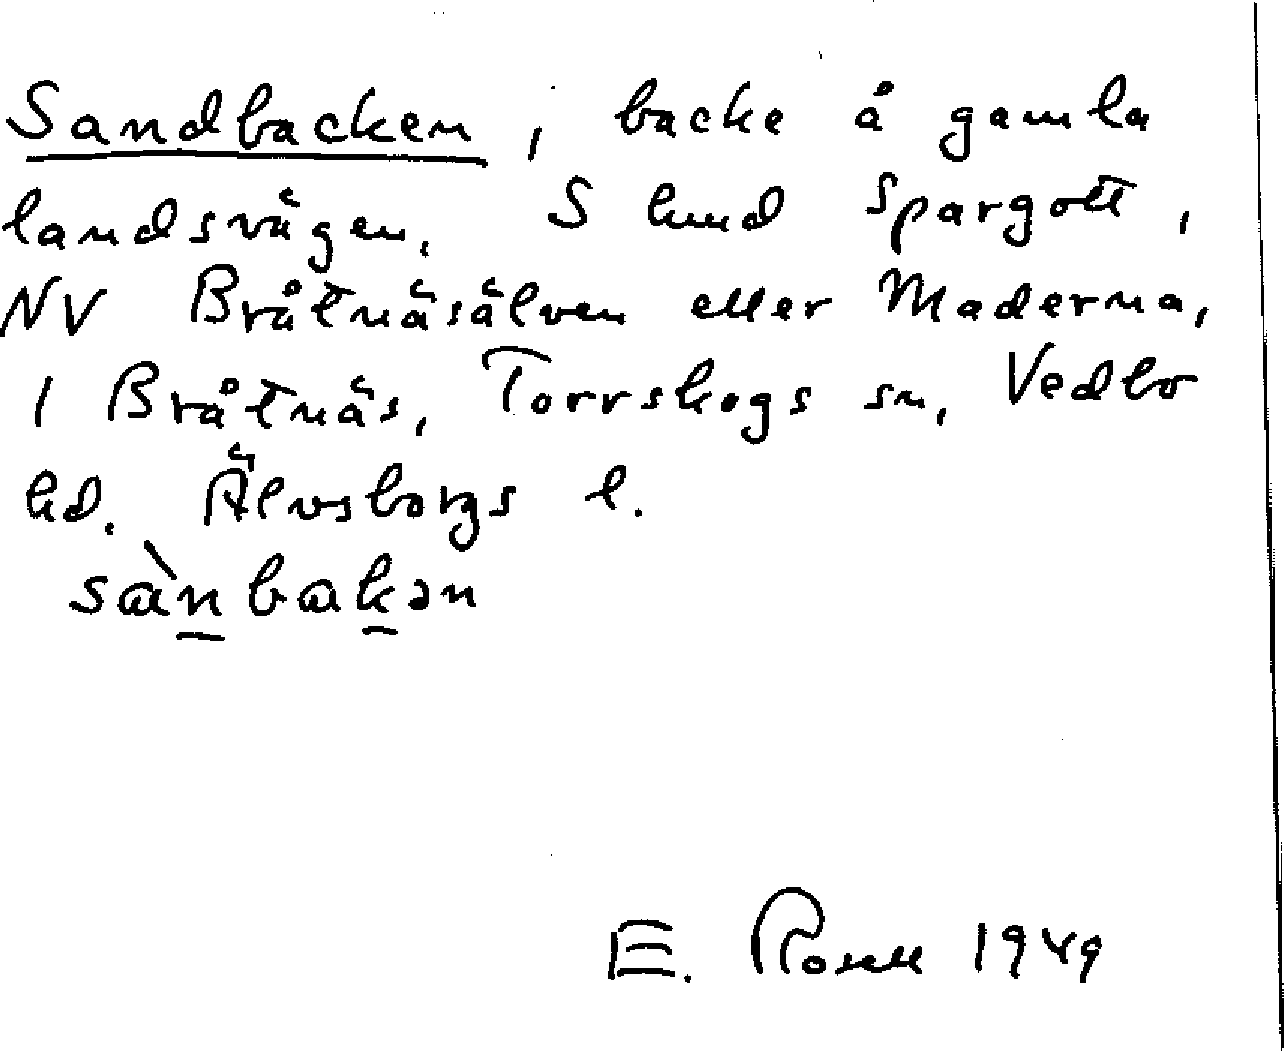 Sandbacken, backe å gamla
landsvägen, S lund Spargott,
NV Bråtnäsälven eller Maderna,
1 Bråtnäs, Torrskogs sn, Vedbo
hd. Älvsborgs l.
sànbakən
E. Rosell 1949